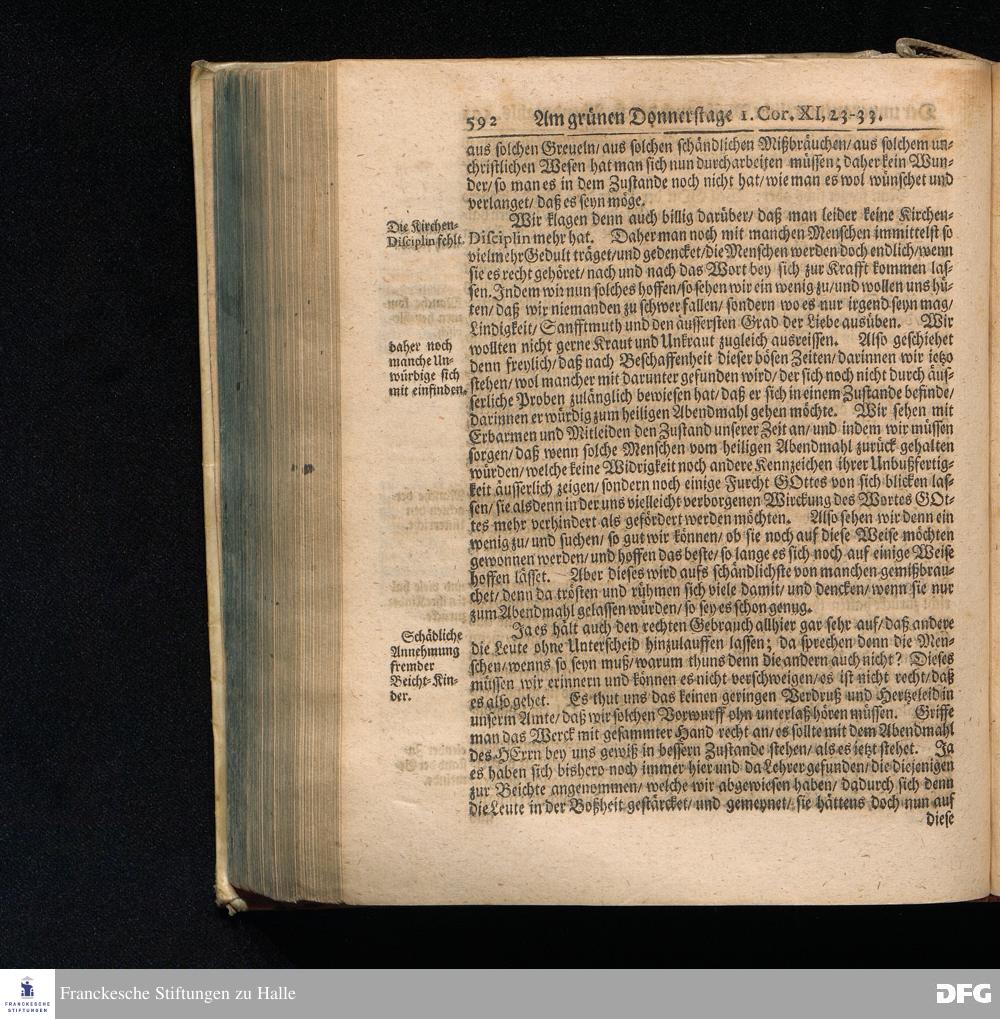 592 Am grünen Donnerstage 1. Cor. XI, 23-33.
aus solchen Greueln/ aus solchen schändlichen Mißbräuchen/ aus solchem un-
christlichen Wesen hat man sich nun durcharbeiten müssen; daher kein Wun-
der/ so man es in dem Zustande noch nicht hat/ wie man es wol wünschet und
verlanget/ daß es seyn möge.
Die Kirchen-
Disciplin fehlt.
Wir klagen denn auch billig darüber/ daß man leider keine Kirchen-
Disciplin mehr hat. Daher man noch mit manchen Menschen immittelst so
vielmehr Gedult träget/ und gedencket/ die Menschen werden doch endlich/ wenn
sie es recht gehöret/ nach und nach das Wort bey sich zur Krafft kommen las-
sen. Indem wir nun solches hoffen/ so sehen wir ein wenig zu/ und wollen uns hü-
ten/ daß wir niemanden zu schwer fallen/ sondern wo es nur irgend seyn mag/
Lindigkeit/ Sanfftmuth und den äussersten Grad der Liebe ausüben. Wir
wollten nicht gerne Kraut und Unkraut zugleich ausreissen. Also geschiehet
daher noch
manche Un-
würdige sich
mit einfinden.
denn freylich/ daß nach Beschaffenheit dieser bösen Zeiten/ darinnen wir ietzo
stehen/ wol mancher mit darunter gefunden wird/ der sich noch nicht durch äus-
serliche Proben zulänglich bewiesen hat/ daß er sich in einem Zustande befinde/
darinnen er würdig zum heiligen Abendmahl gehen möchte. Wir sehen mit
Erbarmen und Mitleiden den Zustand unserer Zeit an/ und indem wir müssen
sorgen/ daß wenn solche Menschen vom heiligen Abendmahl zurück gehalten
würden/ welche keine Widrigkeit noch andere Kennzeichen ihrer Unbußfertig-
keit äusserlich zeigen/ sondern noch einige Furcht GOttes von sich blicken las-
sen/ sie alsdenn in der uns vielleicht verborgenen Wirckung des Wortes GOt-
tes mehr verhindert als gefördert werden möchten. Also sehen wir denn ein
wenig zu/ und suchen/ so gut wir können/ ob sie noch auf diese Weise möchten
gewonnen werden/ und hoffen das beste/ so lange es sich noch auf einige Weise
hoffen lässet. Aber dieses wird aufs schändlichste von manchen gemißbrau-
chet/ denn da trösten und rühmen sich viele damit/ und dencken/ wenn sie nur
zum Abendmahl gelassen würden/ so sey es schon genug.
Schädliche
Annehmung
fremder
Beicht-Kin-
der.
Ja es hält auch den rechten Gebrauch allhier gar sehr auf/ daß andere
die Leute ohne Unterscheid hinzulauffen lassen; da sprechen denn die Men-
schen/ wenns so seyn muß/ warum thuns denn die andern auch nicht? Dieses
müssen wir erinnern und können es nicht verschweigen/ es ist nicht recht/ daß
es also gehet. Es thut uns das keinen geringen Verdruß und Hertzeleid in
unserm Amte/ daß wir solchen Vorwurff ohn unterlaß hören müssen. Griffe
man das Werck mit gesammter Hand recht an/ es sollte mit dem Abendmahl
des HErrn bey uns gewiß in bessern Zustande stehen/ als es ietzt stehet. Ja
es haben sich bishero noch immer hier und da Lehrer gefunden/ die diejenigen
zur Beichte angenommen/ welche wir abgewiesen haben/ dadurch sich denn
die Leute in der Boßheit gestärcket/ und gemeynet/ sie hättens doch nun auf
diese
FRANCKESCHE
STIFTUNGEN
Franckesche Stiftungen zu Halle
DFG